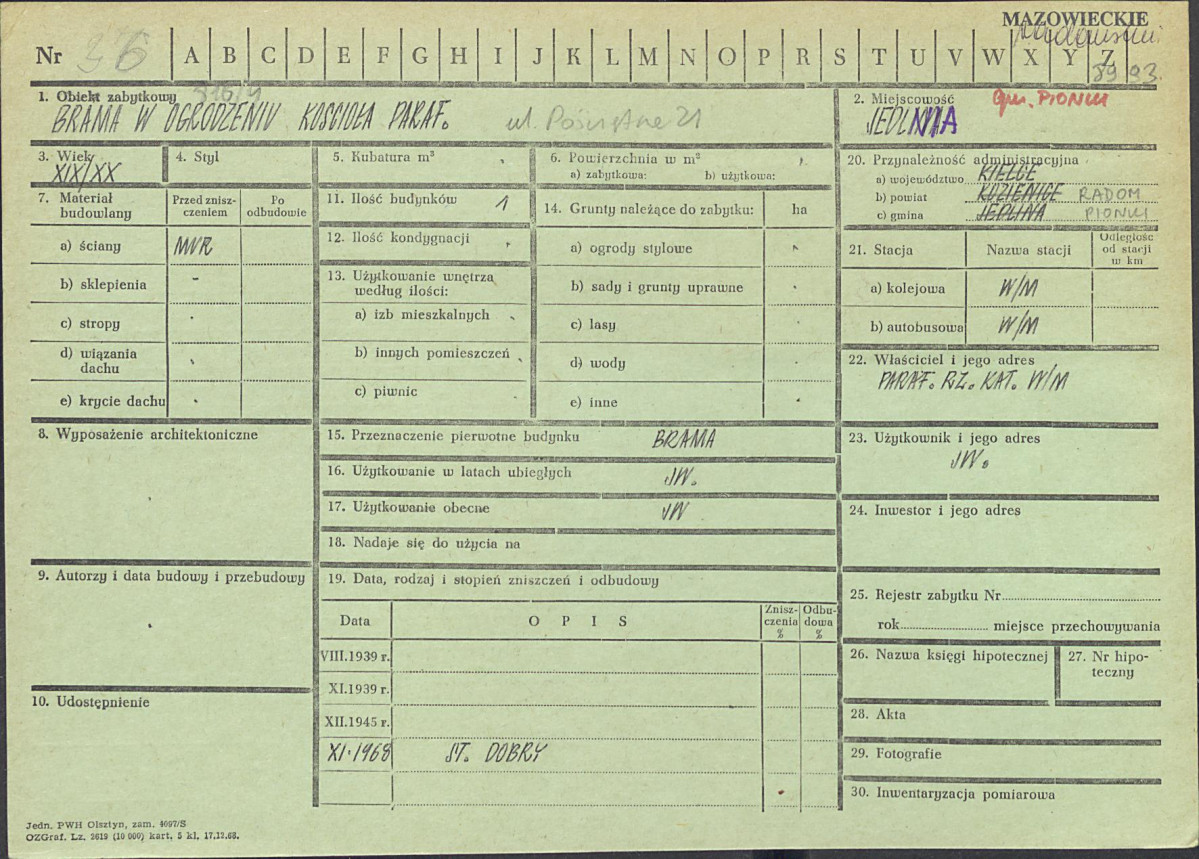 MAZOWIECKIE
Nr 36 A B C D E F G H I J K L M N O P R S T U V W X Y Z
89 93.
1. Obiekt zabytkowy 316/4
BRAMA W OGRODZENIU KOŚCIOŁA PARAF.
2. Miejscowość gm. PIONKI
JEDLNIA
3. Wiek
XIX/XX
4. Styl
5. Kubatura m³
6. Powierzchnia w m²
a) zabytkowa: b) użytkowa:
7. Materiał budowlany
Przed zniszczeniem
Po odbudowie
a) ściany MUR
b) sklepienia -
c) stropy
d) wiązania dachu
e) krycie dachu
11. Ilość budynków 1
12. Ilość kondygnacji
13. Użytkowanie wnętrza według ilości:
a) izb mieszkalnych
b) innych pomieszczeń
c) piwnic
14. Grunty należące do zabytku: ha
a) ogrody stylowe
b) sady i grunty uprawne
c) lasy
d) wody
e) inne
20. Przynależność administracyjna
a) województwo KIELCE
b) powiat KOZIENICE RADOM
c) gmina JEDLNIA PIONKI
21. Stacja Nazwa stacji Odległość od stacji w km
a) kolejowa W/M
b) autobusowa W/M
22. Właściciel i jego adres
PARAF. RZ. KAT. W/M
8. Wyposażenie architektoniczne
15. Przeznaczenie pierwotne budynku BRAMA
16. Użytkowanie w latach ubiegłych JW.
17. Użytkowanie obecne JW
18. Nadaje się do użycia na
23. Użytkownik i jego adres
JW.
24. Inwestor i jego adres
9. Autorzy i data budowy i przebudowy
19. Data, rodzaj i stopień zniszczeń i odbudowy
Data O P I S Zniszczenia % Odbudowa %
VIII.1939 r.
XI.1939 r.
XII.1945 r.
XI.1968 ST. DOBRY
10. Udostępnienie
25. Rejestr zabytku Nr
rok miejsce przechowywania
26. Nazwa księgi hipotecznej
27. Nr hipoteczny
28. Akta
29. Fotografie
30. Inwentaryzacja pomiarowa
Jedn. PWH Olsztyn, zam. 4097/S
OZGraf. Lz. 2619 (10 000) kart. 5 kl. 17.12.68.